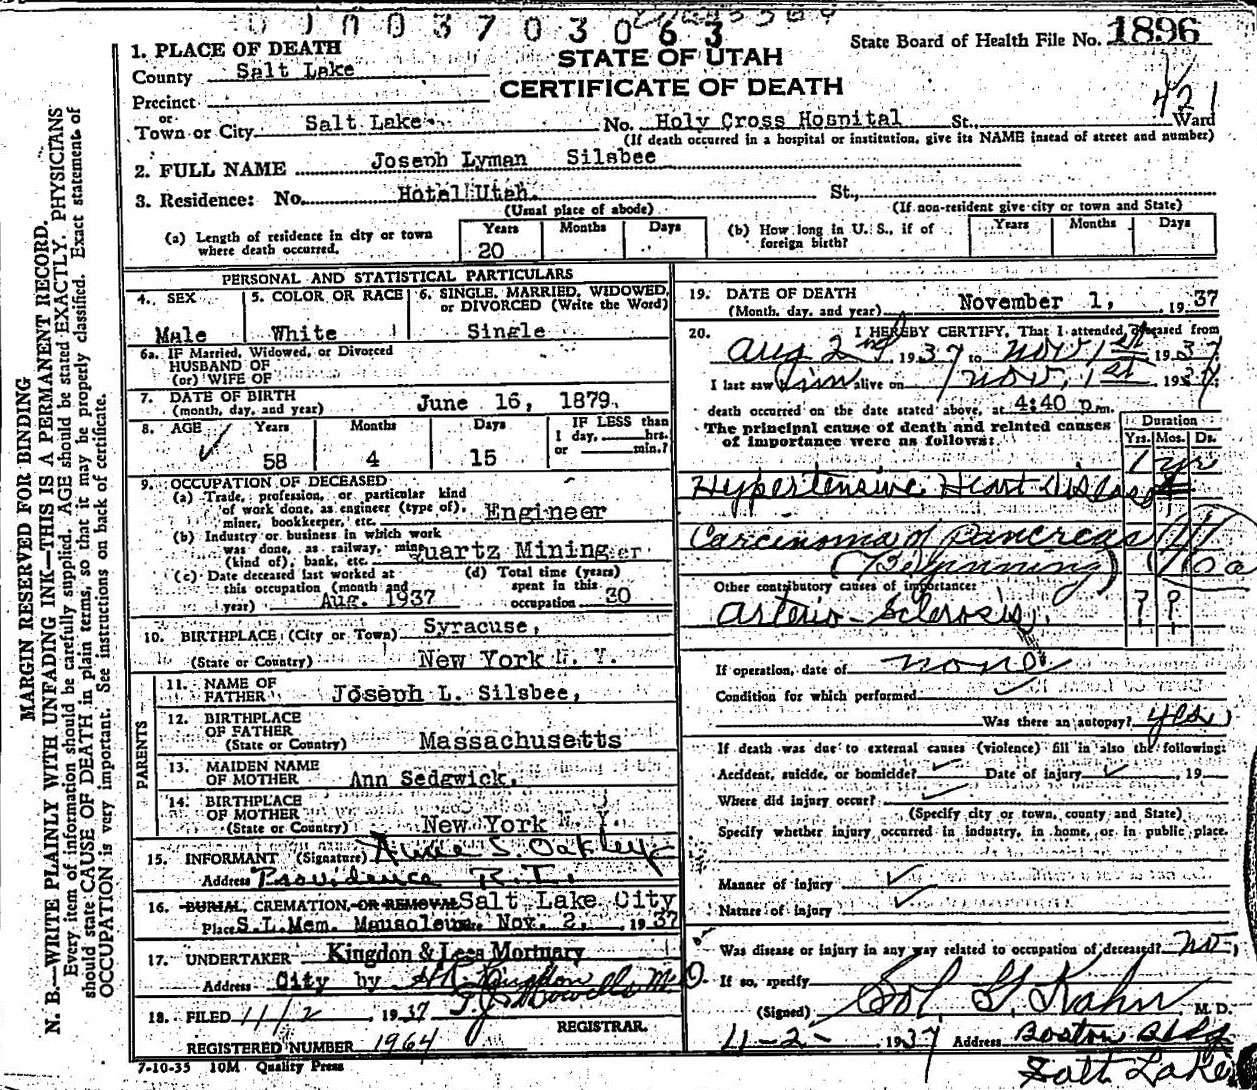 0 1 0 0 3 7 0 3 0 6 3
State Board of Health File No. 1896
STATE OF UTAH
CERTIFICATE OF DEATH
1. PLACE OF DEATH
County Salt Lake
Precinct
or
Town or City Salt Lake No. Holy Cross Hospital St., Ward
421
(If death occurred in a hospital or institution, give its NAME instead of street and number)
2. FULL NAME Joseph Lyman Silsbee
3. Residence: No. Hotel Utah. St.,
(Usual place of abode) (If non-resident give city or town and State)
(a) Length of residence in city or town where death occurred. Years 20 Months Days
(b) How long in U. S., if of foreign birth? Years Months Days
PERSONAL AND STATISTICAL PARTICULARS
4. SEX Male
5. COLOR OR RACE White
6. SINGLE, MARRIED, WIDOWED, or DIVORCED (Write the Word) Single
6a. IF Married, Widowed, or Divorced
HUSBAND OF
(or) WIFE OF
7. DATE OF BIRTH
(month, day, and year) June 16, 1879
8. AGE Years 58 Months 4 Days 15
IF LESS than
1 day, hrs.
or min.?
9. OCCUPATION OF DECEASED
(a) Trade, profession, or particular kind
of work done, as engineer (type of),
miner, bookkeeper, etc. Engineer
(b) Industry or business in which work
was done, as railway, mine
(kind of), bank, etc. Quartz Mining
(c) Date deceased last worked at
this occupation (month and
year) Aug. 1937
(d) Total time (years)
spent in this
occupation 30
10. BIRTHPLACE (City or Town) Syracuse,
(State or Country) New York N. Y.
PARENTS
11. NAME OF
FATHER Joseph L. Silsbee,
12. BIRTHPLACE
OF FATHER
(State or Country) Massachusetts
13. MAIDEN NAME
OF MOTHER Ann Sedgwick,
14. BIRTHPLACE
OF MOTHER
(State or Country) New York N. Y.
15. INFORMANT (Signature) S. Oakley
Address Providence R. I.
16. BURIAL, CREMATION, OR REMOVAL Salt Lake City
Place S.L. Mem. Mausoleum Nov. 2, 1937
17. UNDERTAKER Kingdon & Lees Mortuary
Address City by Kingdon
18. FILED 11/2 1937 T. J. Howells M.D.
REGISTRAR.
REGISTERED NUMBER 1964
7-10-35 10M Quality Press
19. DATE OF DEATH
(Month, day, and year) November 1, 1937
20. I HEREBY CERTIFY, That I attended deceased from
Aug 2nd 1937 to Nov 1st 1937
I last saw him alive on Nov. 1st 1937
death occurred on the date stated above, at 4:40 p.m.
The principal cause of death and related causes
of importance were as follows:
Duration
Yrs. Mos. Ds.
1 yr
Hypertensive Heart Disease
Carcinoma of Pancreas
(Beginning)
Other contributory causes of importance:
Arterio-Sclerosis. ? ?
If operation, date of none
Condition for which performed
Was there an autopsy? yes
If death was due to external causes (violence) fill in also the following:
Accident, suicide, or homicide? Date of injury , 19
Where did injury occur?
(Specify city or town, county and State)
Specify whether injury occurred in industry, in home, or in public place.
Manner of injury
Nature of injury
Was disease or injury in any way related to occupation of deceased? no
If so, specify
(Signed) Sol G. Kahn M. D.
11-2- 1937 Address Boston Bldg
Salt Lake
MARGIN RESERVED FOR BINDING
N. B.—WRITE PLAINLY WITH UNFADING INK—THIS IS A PERMANENT RECORD.
Every item of information should be carefully supplied. AGE should be stated EXACTLY. PHYSICIANS
should state CAUSE OF DEATH in plain terms, so that it may be properly classified. Exact statement of
OCCUPATION is very important. See instructions on back of certificate.